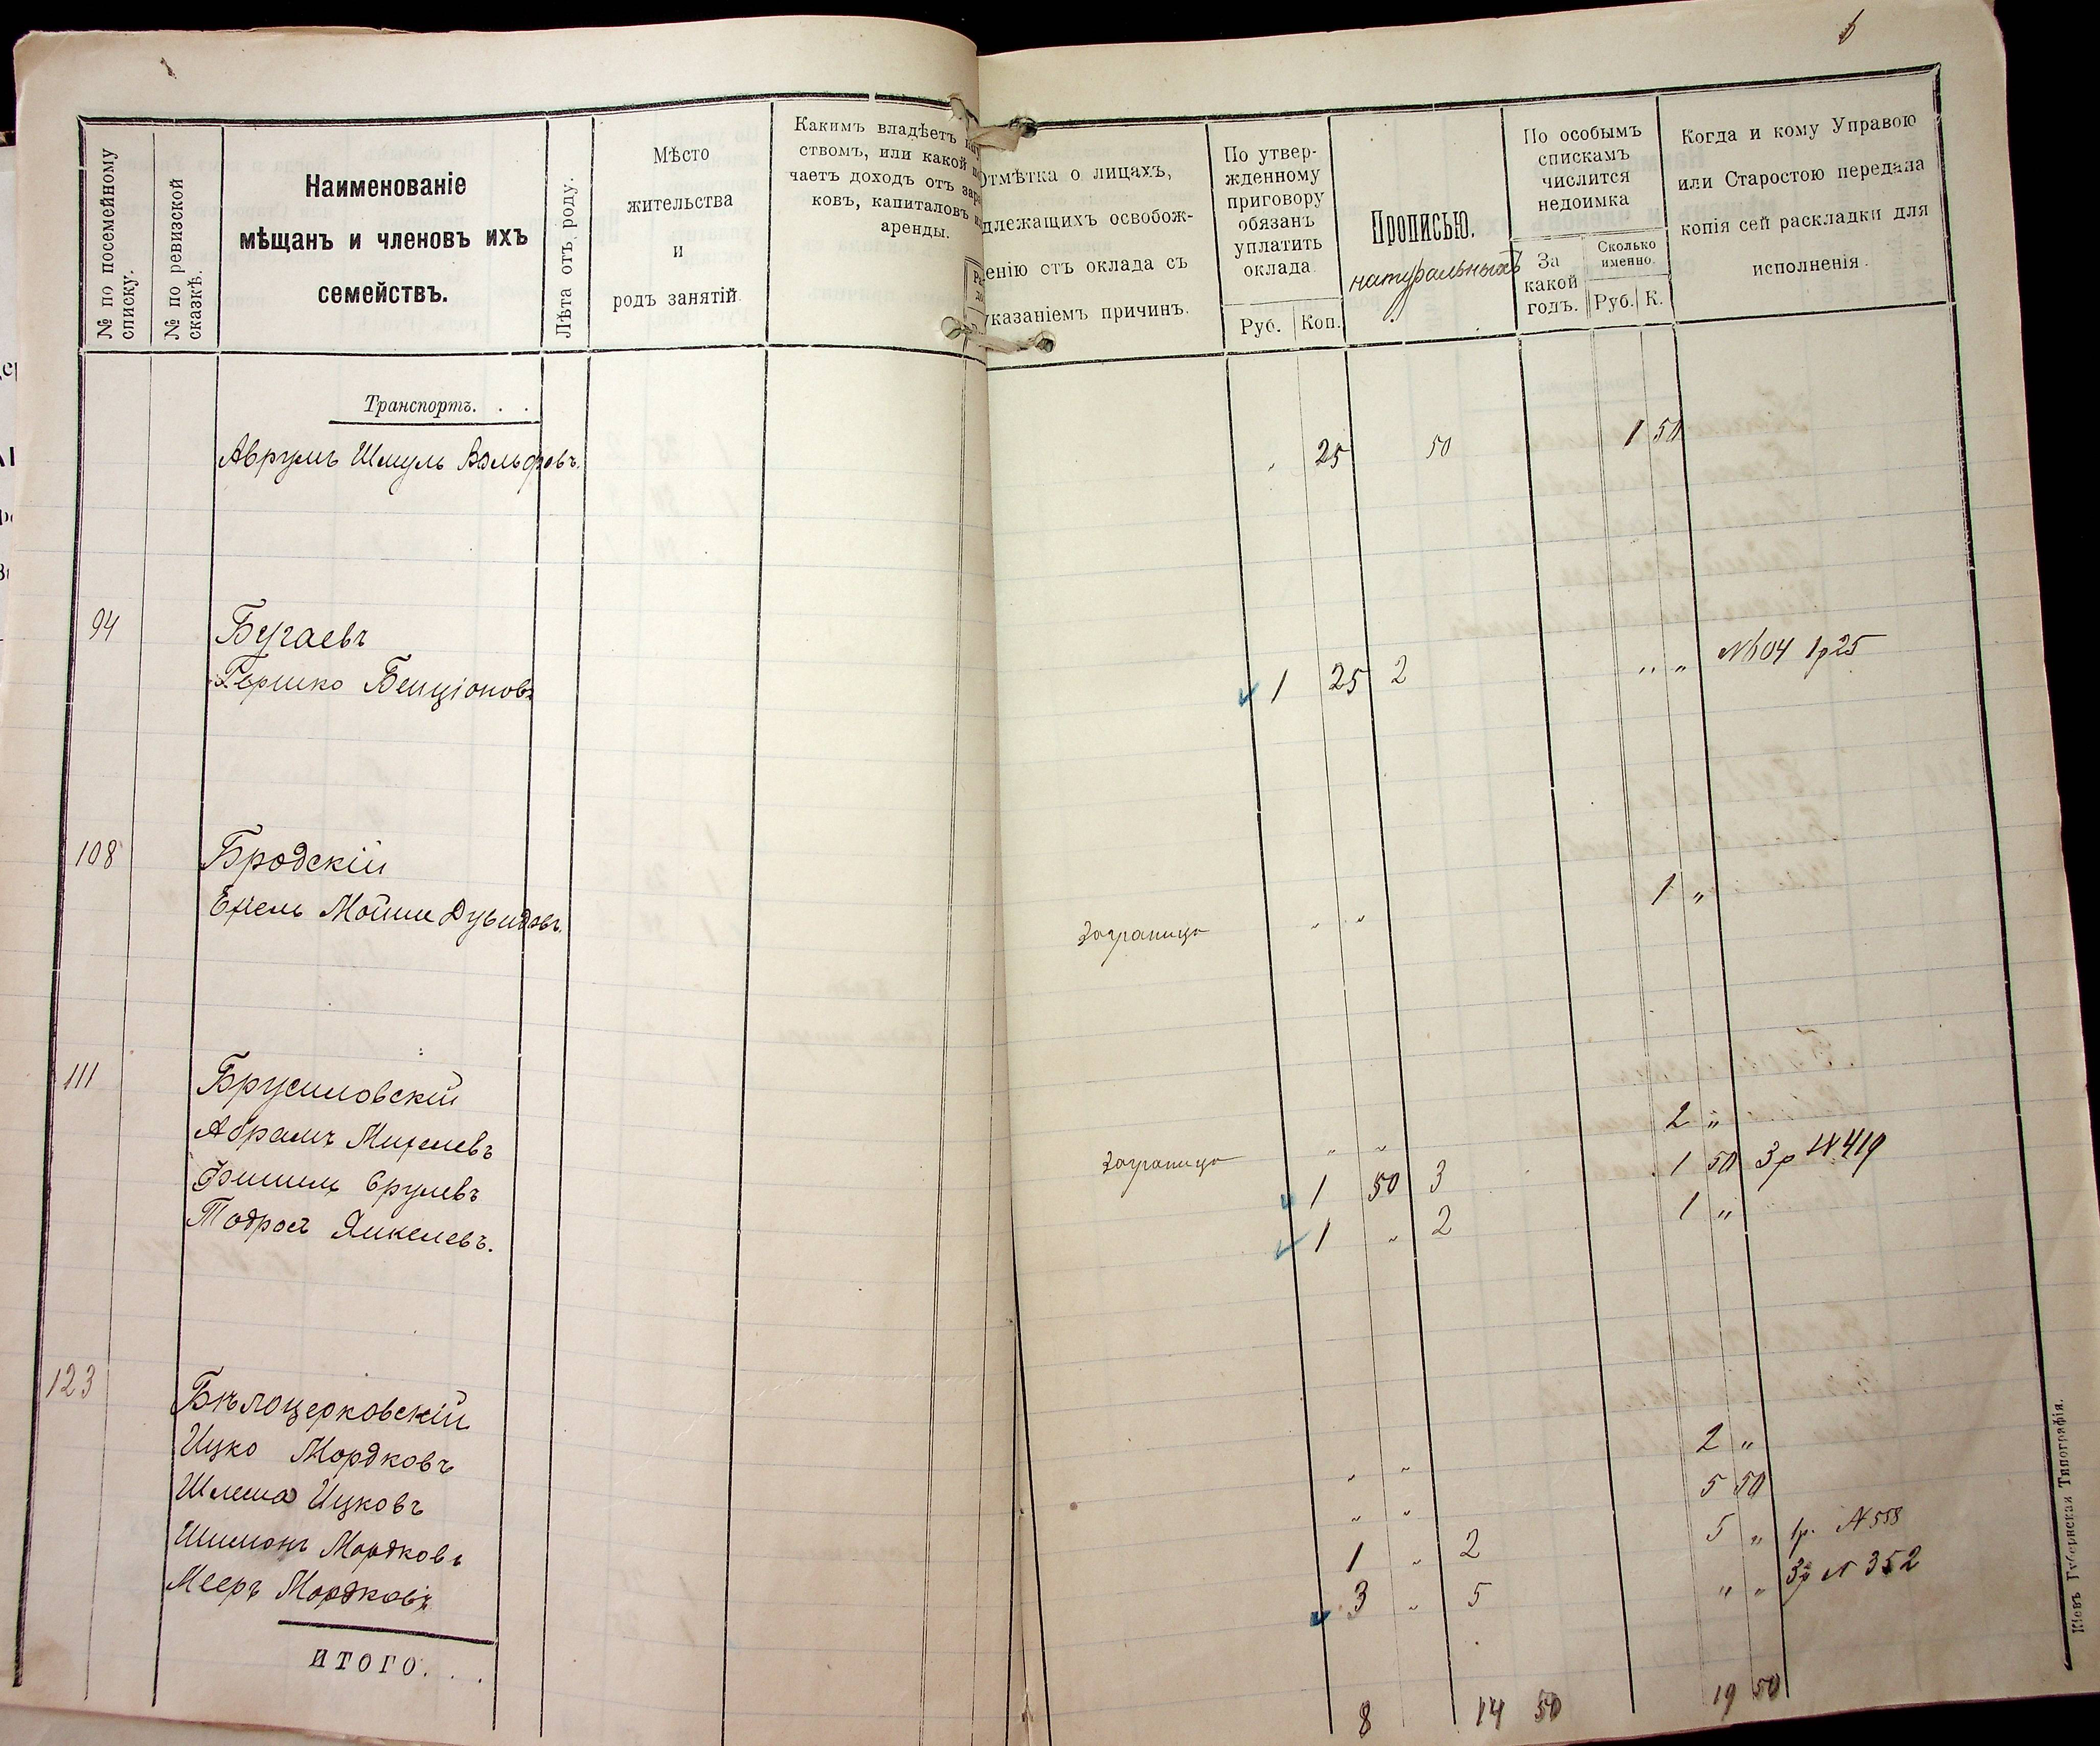 № по посемейному списку.
№ по ревизской сказкѣ.
Наименованіе
мѣщанъ и членовъ ихъ
семействъ.
Лѣта отъ роду.
Мѣсто
жительства
и
родъ занятій.
Какимъ владѣетъ
ствомъ, или какой
чаетъ доходъ отъ
ковъ, капиталовъ
аренды.
Отмѣтка о лицахъ,
длежащихъ освобож-
енію отъ оклада съ
указаніемъ причинъ.
По утвер-
жденному
приговору
обязанъ
уплатить
оклада.
Руб. Коп.
Прописью.
натуральныхъ
По особымъ
спискамъ
числится
недоимка
За
какой
годъ.
Сколько
именно.
Руб. К.
Когда и кому Управою
или Старостою передана
копія сей раскладки для
исполненія.
Транспортъ. . .
Аврумъ Шмуль Вольфовъ. „ 25 50 1 50
94 Бугаевъ
Гершко Бенціоновъ 1 25 2 „ „ 1р 25
108 Бродскій
Мойше Дувидовъ. заграницу „ „ 1 „
111 Брусиловскій
Абрамъ заграницу „ „ 2 „
Фишель Срулевъ 1 50 3 1 50 3р № 419
Тодросъ Янкелевъ. 1 „ 2 1 „
123 Бѣлоцерковскій
Ицко Мордковъ „ „ 2 „
Шлема Ицковъ „ „ 5 50
Шимонъ Мордковъ 1 „ 2 5 „ 1р. № 558
Мееръ Мордковъ 3 „ 5 „ „ 3р № 352
ИТОГО. . . 8 14 50 19 50
Кіевъ Губернская Типографія.